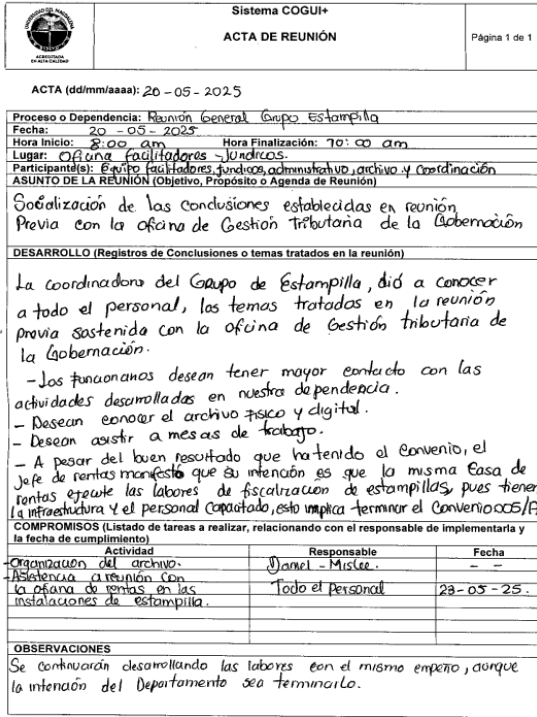 UNIVERSIDAD DEL MAGDALENA
ACREDITADA
EN ALTA CALIDAD
Sistema COGUI+
ACTA DE REUNIÓN
Página 1 de 1
ACTA (dd/mm/aaaa): 20-05-2025
Proceso o Dependencia: Reunión General Grupo Estampilla
Fecha: 20-05-2025
Hora Inicio: 8:00 am Hora Finalización: 10:00 am
Lugar: Oficina facilitadores - Jurídicos.
Participante(s): Equipo facilitadores, jurídicos, administrativo, archivo y coordinación
ASUNTO DE LA REUNIÓN (Objetivo, Propósito o Agenda de Reunión)
Socialización de las conclusiones establecidas en reunión
Previa con la oficina de Gestión Tributaria de la Gobernación
DESARROLLO (Registros de Conclusiones o temas tratados en la reunión)
La coordinadora del Grupo de Estampilla, dió a conocer
a todo el personal, los temas tratados en la reunión
previa sostenida con la oficina de Gestión tributaria de
la Gobernación.
- Los funcionarios desean tener mayor contacto con las
actividades desarrolladas en nuestra dependencia.
- Desean conocer el archivo físico y digital.
- Desean asistir a mesas de trabajo.
- A pesar del buen resultado que ha tenido el Convenio, el
Jefe de rentas manifestó que su intención es que la misma Casa de
rentas ejecute las labores de fiscalización de estampillas, pues tienen
la infraestructura y el personal Capacitado, esto implica terminar el Convenio 005/
COMPROMISOS (Listado de tareas a realizar, relacionando con el responsable de implementarla y
la fecha de cumplimiento)
Actividad Responsable Fecha
- Organización del archivo. Daniel - Mislee. - -
- Asistencia a reunión con
la oficina de rentas en las Todo el Personal 23-05-25.
instalaciones de estampilla.
OBSERVACIONES
Se continuarán desarrollando las labores con el mismo empeño, aunque
la intención del Departamento sea terminarlo.